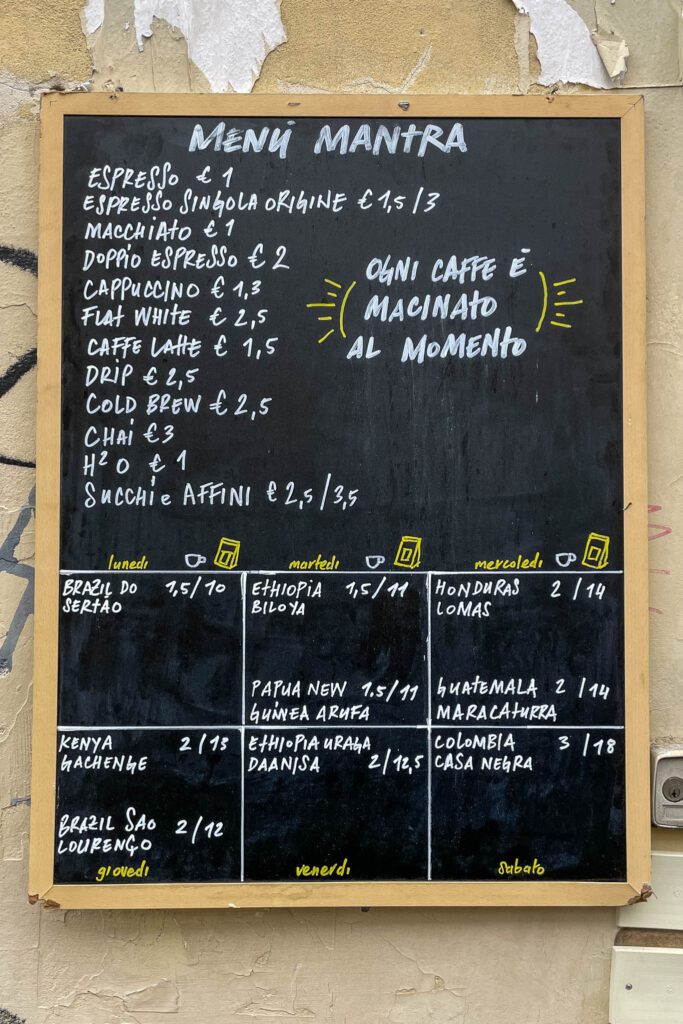 MENÚ MANTRA
ESPRESSO € 1
ESPRESSO SINGOLA ORIGINE € 1,5/3
MACCHIATO € 1
DOPPIO ESPRESSO € 2
CAPPUCCINO € 1,3
FLAT WHITE € 2,5
CAFFE LATTE € 1,5
DRIP € 2,5
COLD BREW € 2,5
CHAI € 3
H²O € 1
SUCCHI e AFFINI € 2,5/3,5
OGNI CAFFE È
MACINATO
AL MOMENTO
lunedi
martedi
mercoledi
BRAZIL DO 1,5/10
SERTÃO
ETHIOPIA 1,5/11
BILOYA
PAPUA NEW 1.5/11
GUINEA ARUFA
HONDURAS 2/14
LOMAS
GUATEMALA 2/14
MARACATURRA
KENYA 2/13
GACHENGE
BRAZIL SAO 2/12
LOURENÇO
giovedi
ETHIOPIA URAGA
DAANISA 2/12,5
venerdi
COLOMBIA 3/18
CASA NEGRA
sabato